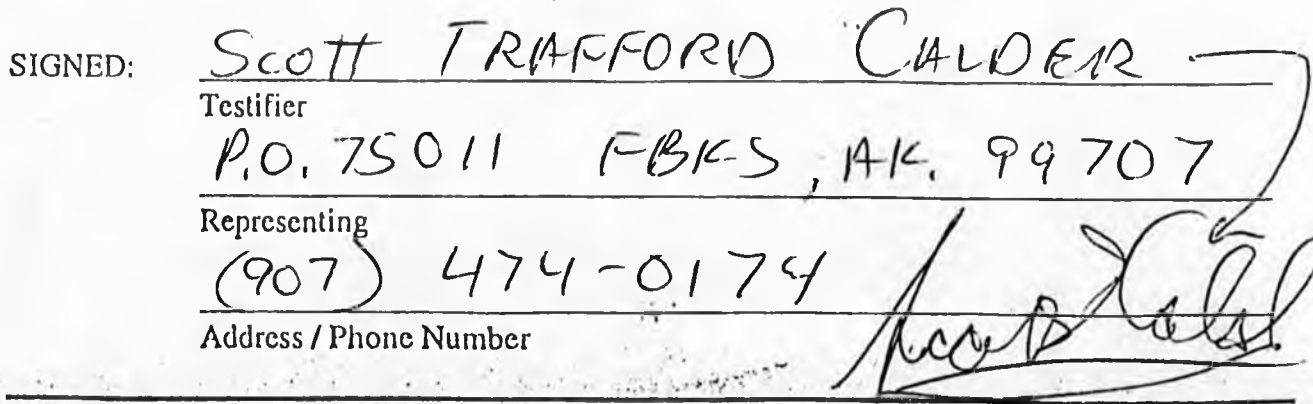 SIGNED: Scott TRAFFORD CALDER
Testifier
P.O. 75011 FBKS, AK. 99707
Representing
(907) 474-0174
Address / Phone Number
Scott Calder